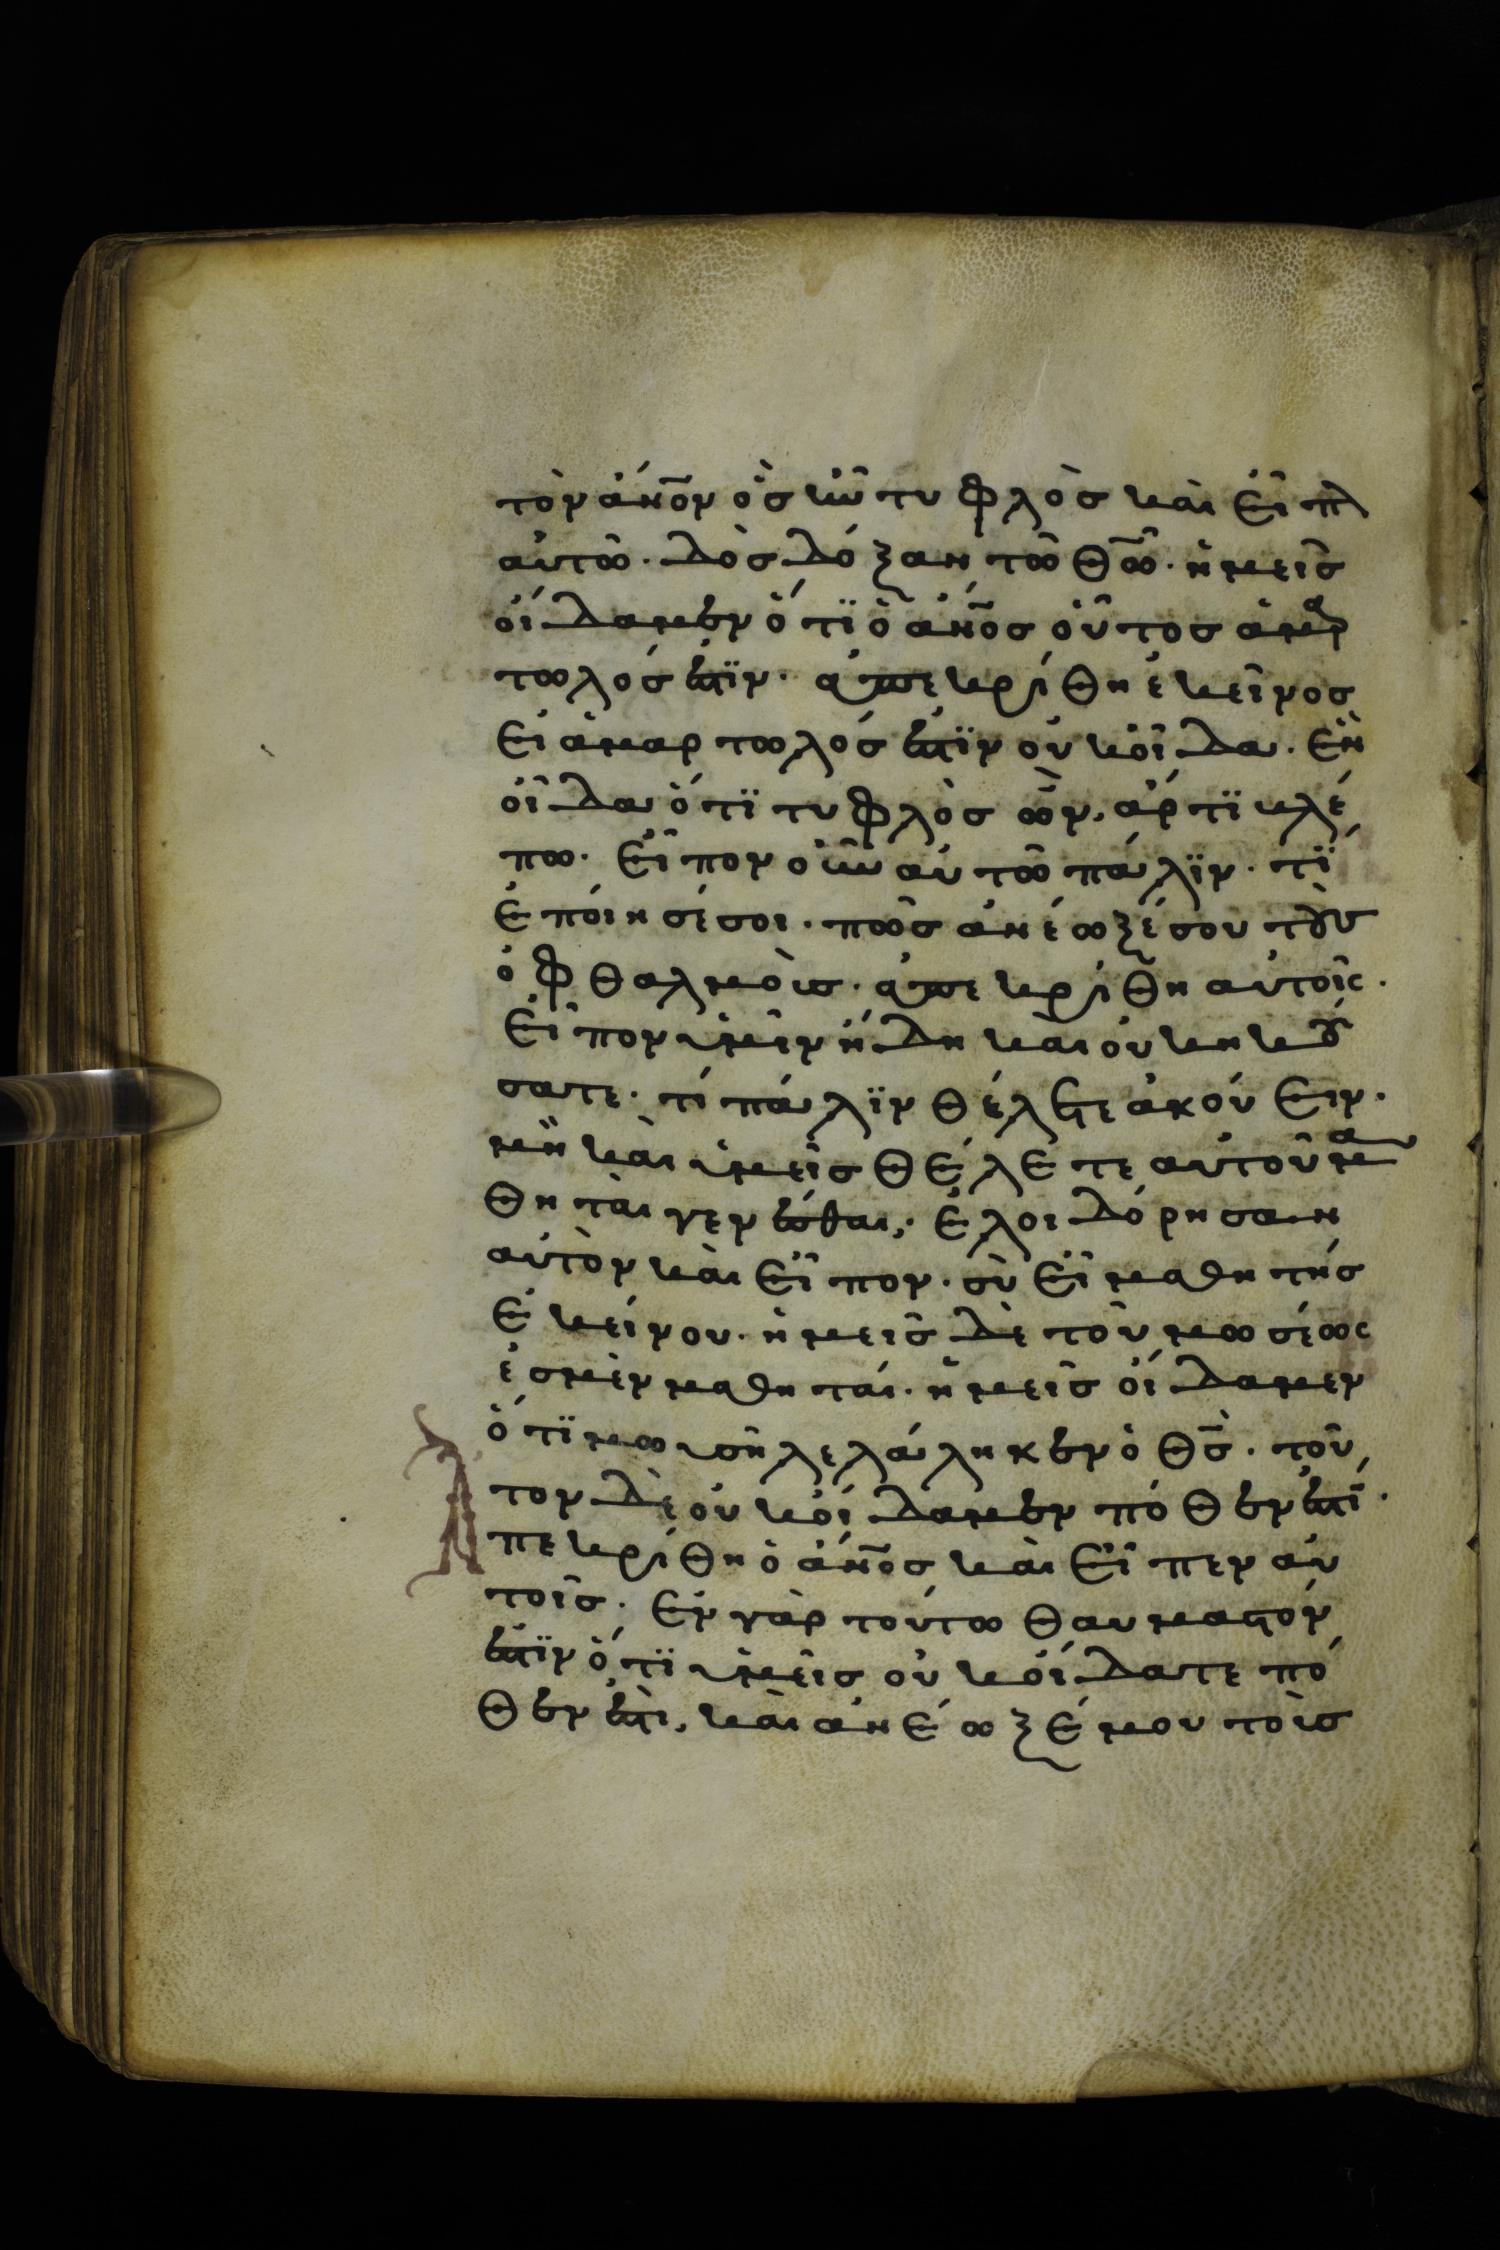 τὸν ἄν̅ον ὃς ἦν τυφλὸς καὶ εἶπ̅
αὐτῶ· δὸς δόξαν τῶ θ̅ῶ· ἡμεῖς
οἴδαμεν ὅτϊ ὁ ἄν̅ος οὗτος ἁμαρ
τωλός ἐστϊν· ἀπεκρίθη ἐκεῖνος
εἰ ἁμαρτωλός ἐστϊν οὐκ οἶδα· ἓν
οἶδα ὅτϊ τυφλὸς ὢν, ἄρτϊ βλέ
πω· εἶπον οὖν αὐτῶ πάλϊν· τί
ἐποίησέ σοι· πῶς ἀνέωξέ σου τοὺς
ὀφθαλμούς· ἀπεκρίθη αὐτοῖς·
εἶπον ὑμῖν ἤδη καὶ οὐκ ἠκού
σατε· τί πάλϊν θέλετε ἀκούειν·
μὴ καὶ ὑμεῖς θέλετε αὐτοῦ μα
θηταὶ γενέσθαι; ἐλοιδόρησαν
αὐτὸν καὶ εἶπον· σὺ εἶ μαθητής
ἐκείνου· ἡμεῖς δὲ τοῦ μωσέως
ἐσμὲν μαθηταί· ἡμεῖς οἴδαμεν
ὅτϊ μωυσῆ λελάληκεν ὁ θ̅ς· τοῦ
τον δὲ οὐκ οἴδαμεν πόθεν ἐστί·
Ἀπεκρίθη ὁ ἄν̅ος καὶ εἶπεν αὐ
τοῖς· ἐν γὰρ τούτω θαυμαστόν
ἐστϊν ὅτϊ ὑμεῖς οὐκ οἴδατε πό
θεν ἐστὶ, καὶ ἀνέωξέ μου τοὺς